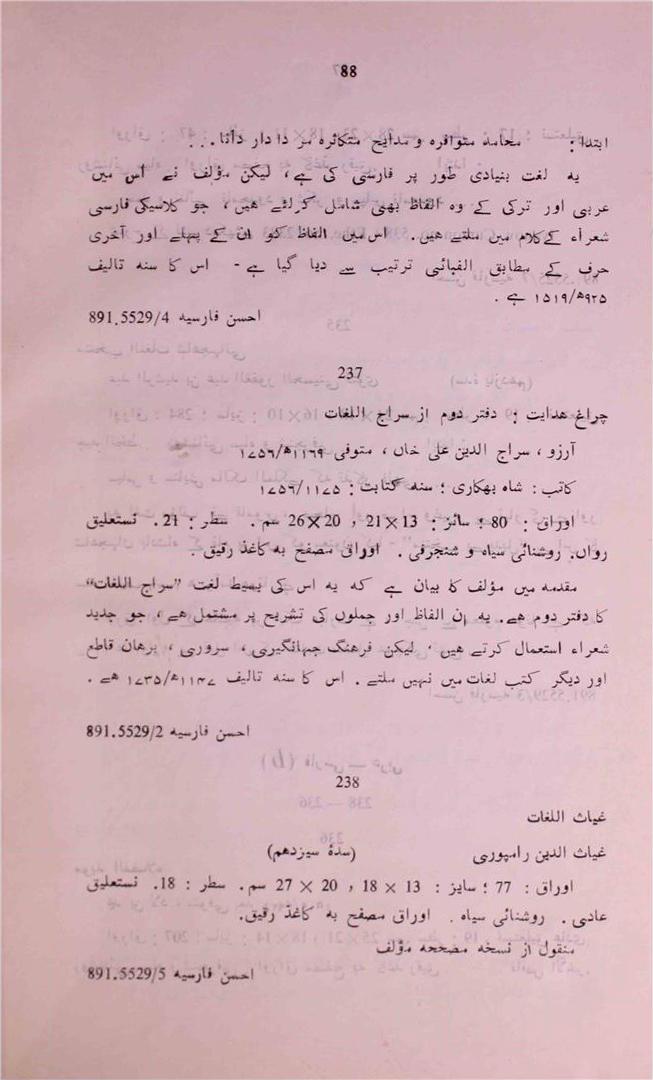 88
ابتدا : محامد متوافره و مدایح متکاثره مر دادار دانا...
یہ لغت بنیادی طور پر فارسی کی ہے، لیکن مؤلف نے اس میں
عربی اور ترکی کے وہ الفاظ بھی شامل کر لئے ہیں، جو کلاسیکی فارسی
شعراء کے کلام میں ملتے ہیں۔ اس میں الفاظ کو ان کے پہلے اور آخری
حرف کے مطابق الفبائی ترتیب سے دیا گیا ہے - اس کا سنہ تالیف
۹۲۵ھ/۱۵۱۹ ہے۔
احسن فارسیہ 891.5529/4
237
چراغ ہدایت : دفتر دوم از سراج اللغات
آرزو، سراج الدین علی خاں، متوفی ۱۱۶۹ھ/۱۷۵۶
کاتب : شاہ بھکاری ؛ سنہ کتابت : ۱۱۷۵/۱۷۵۶
اوراق : 80 ؛ سائز : 13×21 ، 20×26 سم۔ سطر : 21۔ نستعلیق
رواں۔ روشنائی سیاہ و شنجرفی۔ اوراق مصفح بہ کاغذ رقیق۔
مقدمہ میں مؤلف کا بیان ہے کہ یہ اس کی بسیط لغت ”سراج اللغات“
کا دفتر دوم ہے۔ یہ ان الفاظ اور جملوں کی تشریح پر مشتمل ہے، جو جدید
شعراء استعمال کرتے ہیں، لیکن فرہنگ جہانگیری، سروری، برہان قاطع
اور دیگر کتب لغات میں نہیں ملتے۔ اس کا سنہ تالیف ۱۱۴۷ھ/۱۷۳۵ ہے۔
احسن فارسیہ 891.5529/2
238
غیاث اللغات
غیاث الدین رامپوری (سدۂ سیزدہم)
اوراق : 77 ؛ سایز : 13 × 18 ، 20 × 27 سم۔ سطر : 18۔ نستعلیق
عادی۔ روشنائی سیاہ۔ اوراق مصفح بہ کاغذ رقیق۔
منقول از نسخہ مصححہ مؤلف
احسن فارسیہ 891.5529/5